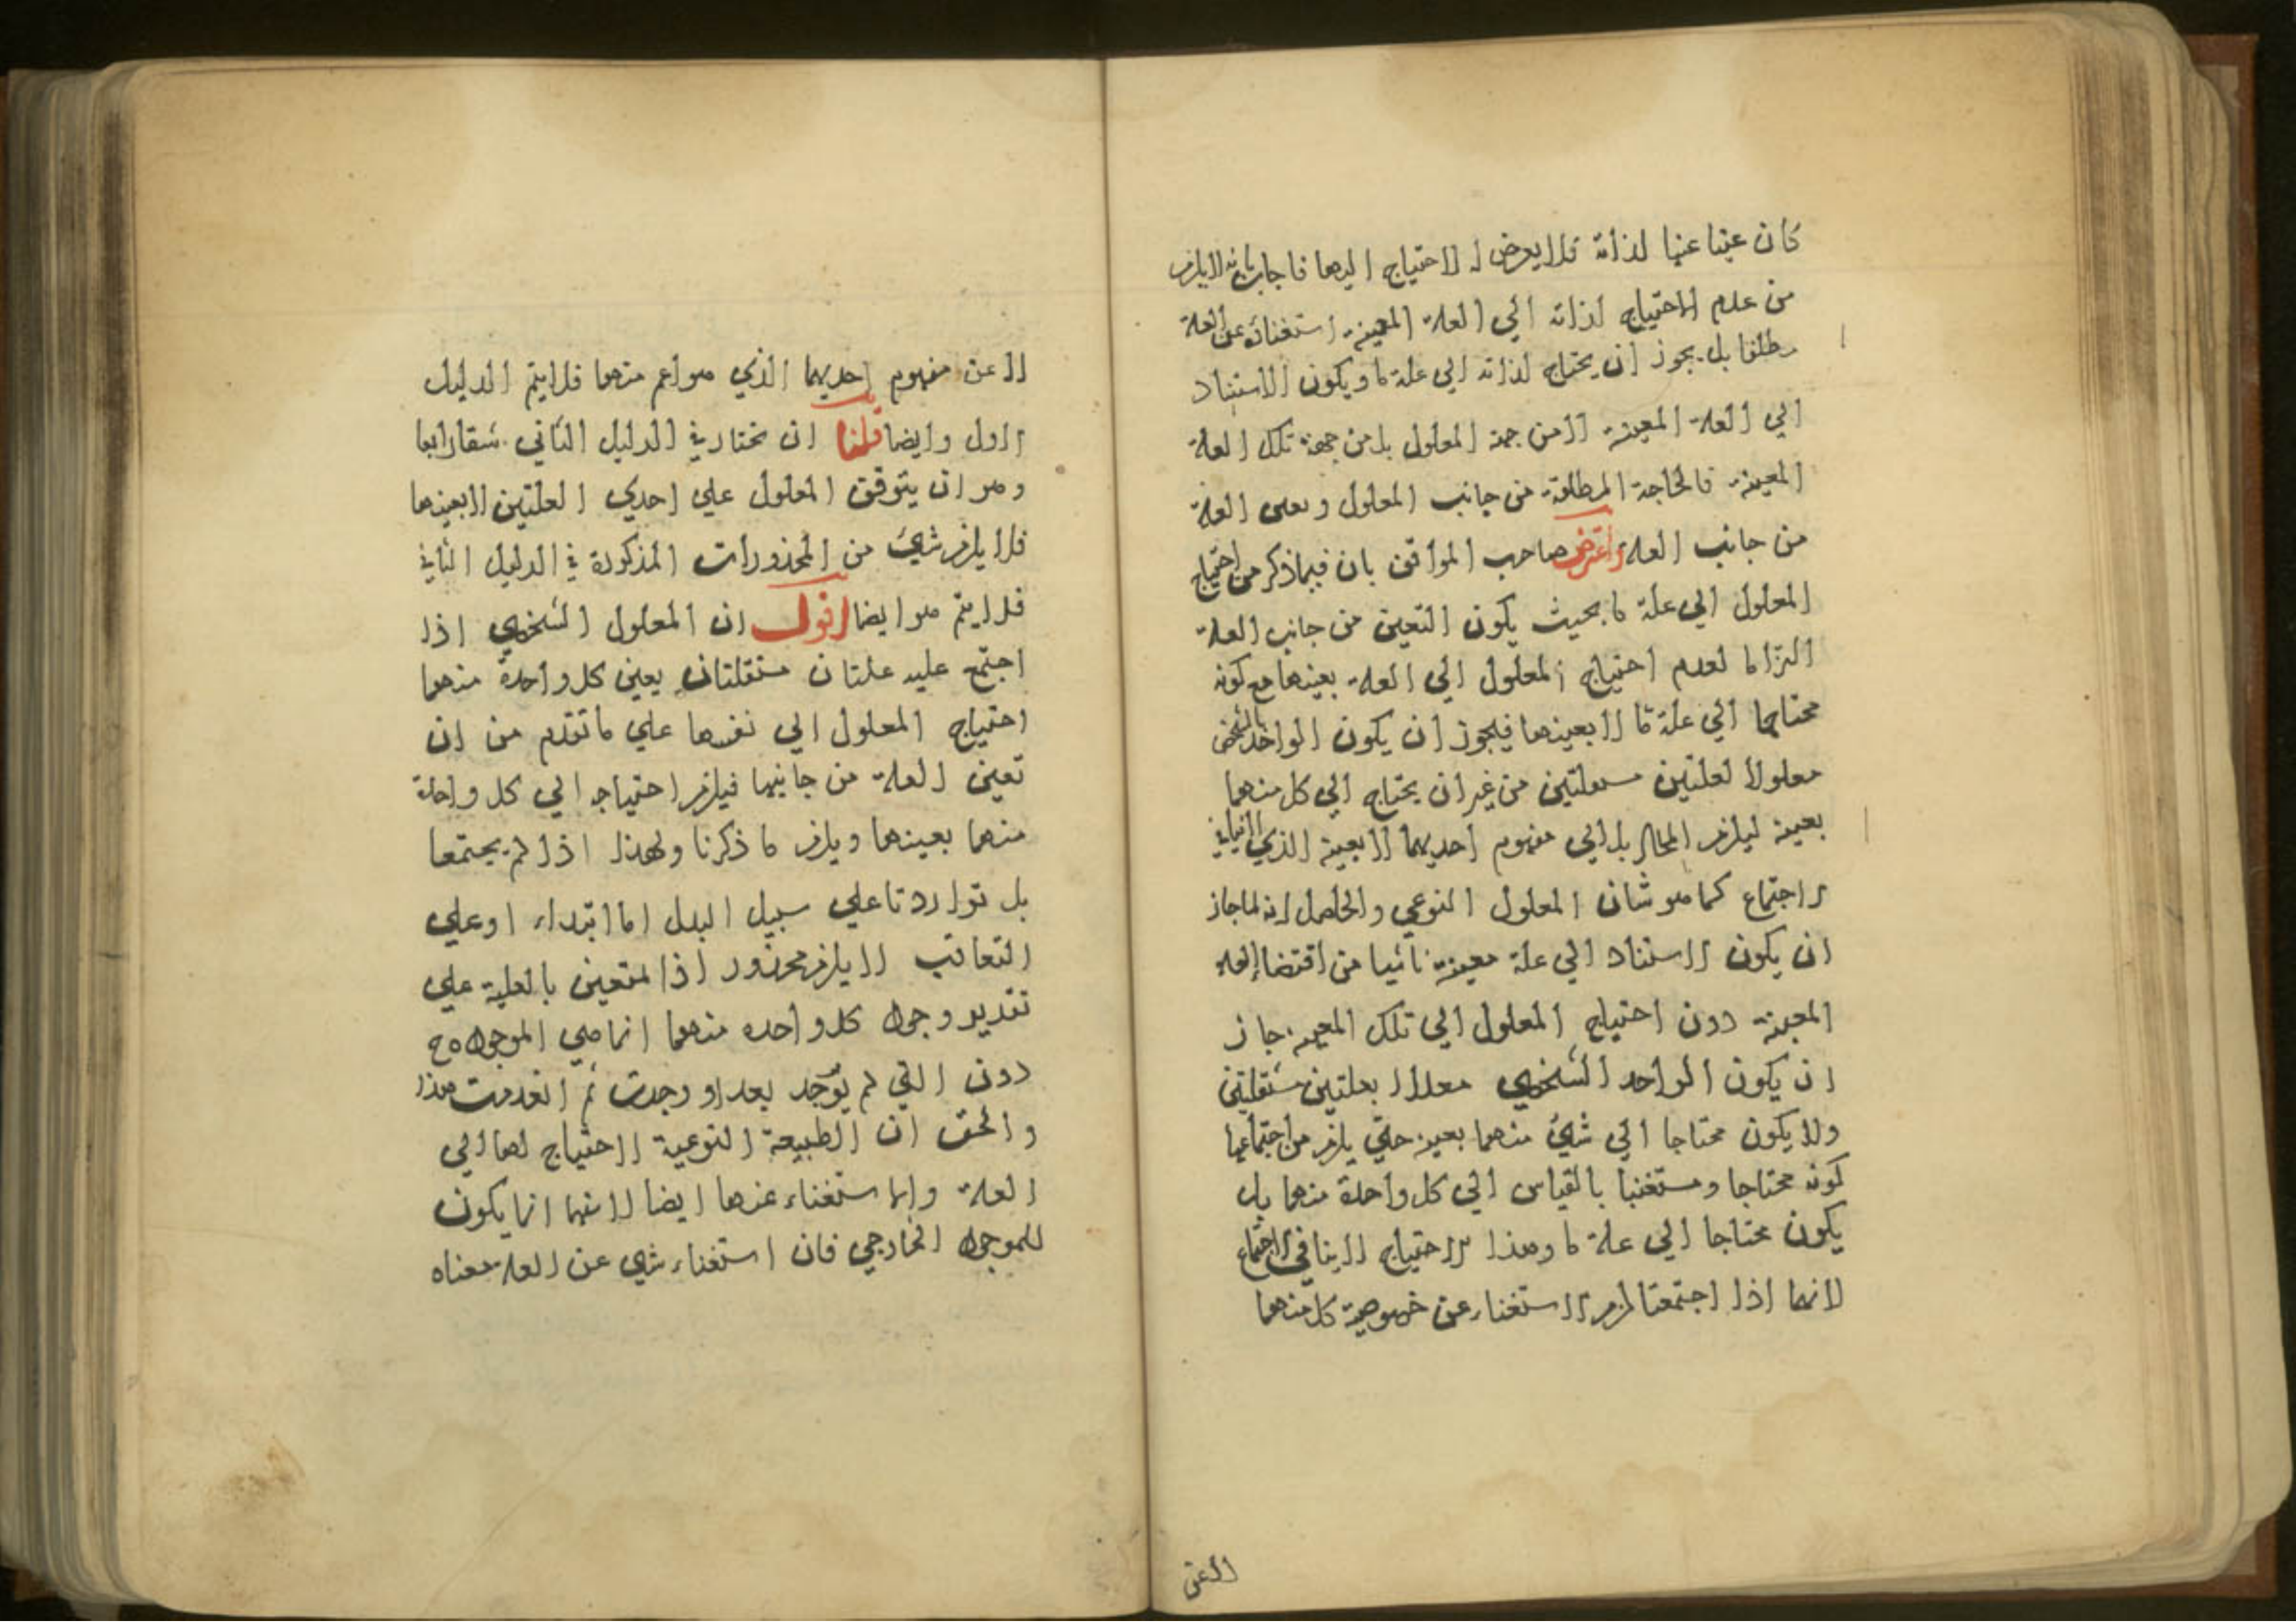 كان عنيا عنها لذاته فلا يعرض له الاحتياج اليها فاجاب بانه لا يلزم
من عدم الاحتياج لذاته الي العلة المعينة استغنائه عن العلة
مطلقا بل يجوز ان يحتاج لذاته الي علة ما ويكون الاستناد
الي العلة المعينة لا من جهة المعلول بل من جهة تلك العلة
المعينة فالحاجة المطلقة من جانب المعلول وتعين العلة
من جانب العلة واعترض صاحب المواقف بان فيما ذكر من احتياج
المعلول الي علة ما بحيث يكون التعين من جانب العلة
التزاما لعدم احتياج المعلول الي العلة بعينها مع كونه
محتاجا الي علة ما لا بعينها فيجوز ان يكون الواحد بالشخص
معلولا لعلتين مستقلتين من غير ان يحتاج الي كل منهما
بعينه ليلزم المحال بل الي مفهوم احديهما لا بعينه الذي لا ينافي
الاجتماع كما هو شان المعلول النوعي والحاصل انه لما جاز
ان يكون الاستناد الي علة معينة ناشيا من اقتضا العلة
المعينة دون احتياج المعلول الي تلك المعينة جاز
ان يكون الواحد الشخصي معللا بعلتين مستقلتين
ولا يكون محتاجا الي شئ منهما بعينه حتي يلزم من اجتماعهما
كونه محتاجا ومستغنيا بالقياس الي كل واحدة منهما بل
يكون محتاجا الي علة ما وهذا الاحتياج لا ينافي الاجتماع
لانهما اذا اجتمعتا لزم الاستغناء عن خصوصية كل منهما
لا عن
لا عن مفهوم احديهما الذي هو اعم منهما فلا يتم الدليل
الاول وايضا قلنا ان نختار في الدليل الثاني شقا رابعا
وهو ان يتوقف المعلول علي احدي العلتين لا بعينها
فلا يلزم شئ من المحذورات المذكورة في الدليل الثاني
فلا يتم هو ايضا اقول ان المعلول الشخصي اذا
اجتمع عليه علتان مستقلتان يعين كل واحدة منهما
احتياج المعلول الي نفسها علي ما تقدم من ان
تعين العلة من جانبها فيلزم احتياجه الي كل واحدة
منهما بعينها ويلزم ما ذكرنا ولهذا اذا لم يجتمعا
بل تواردتا علي سبيل البدل اما ابتداء او علي
التعاقب لا يلزم محذور اذ المتعين بالعلية علي
تقدير وجود كل واحده منهما انما هي الموجوده
دون التي لم توجد بعد او وجدت ثم انعدمت هذا
والحق ان الطبيعة النوعية لا احتياج لها الي
العلة ولا استغناء عنها ايضا لانهما انما يكون
للموجود الخارجي فان استغناء شي عن العلة معناه